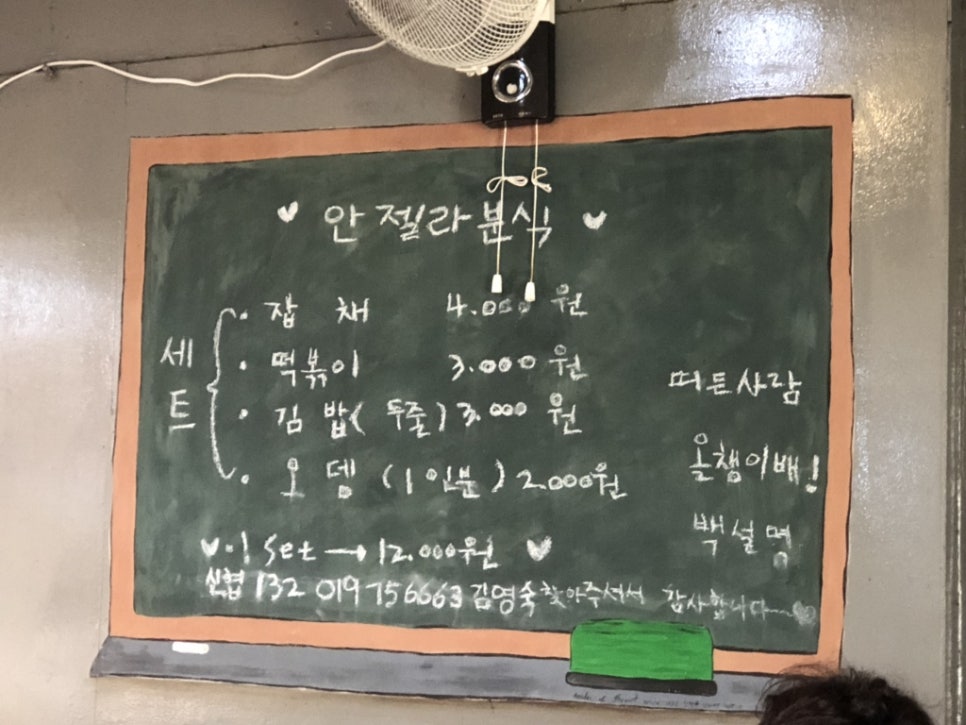 안젤라분식
세트
잡채 4.000원
떡볶이 3.000원
김밥(두줄) 3.000원
오뎅 (1인분) 2.000원
1 set → 12.000원
신협 132 019 756663 김영숙 찾아주셔서 감사합니다
떠든사람
올챙이배!
백설명